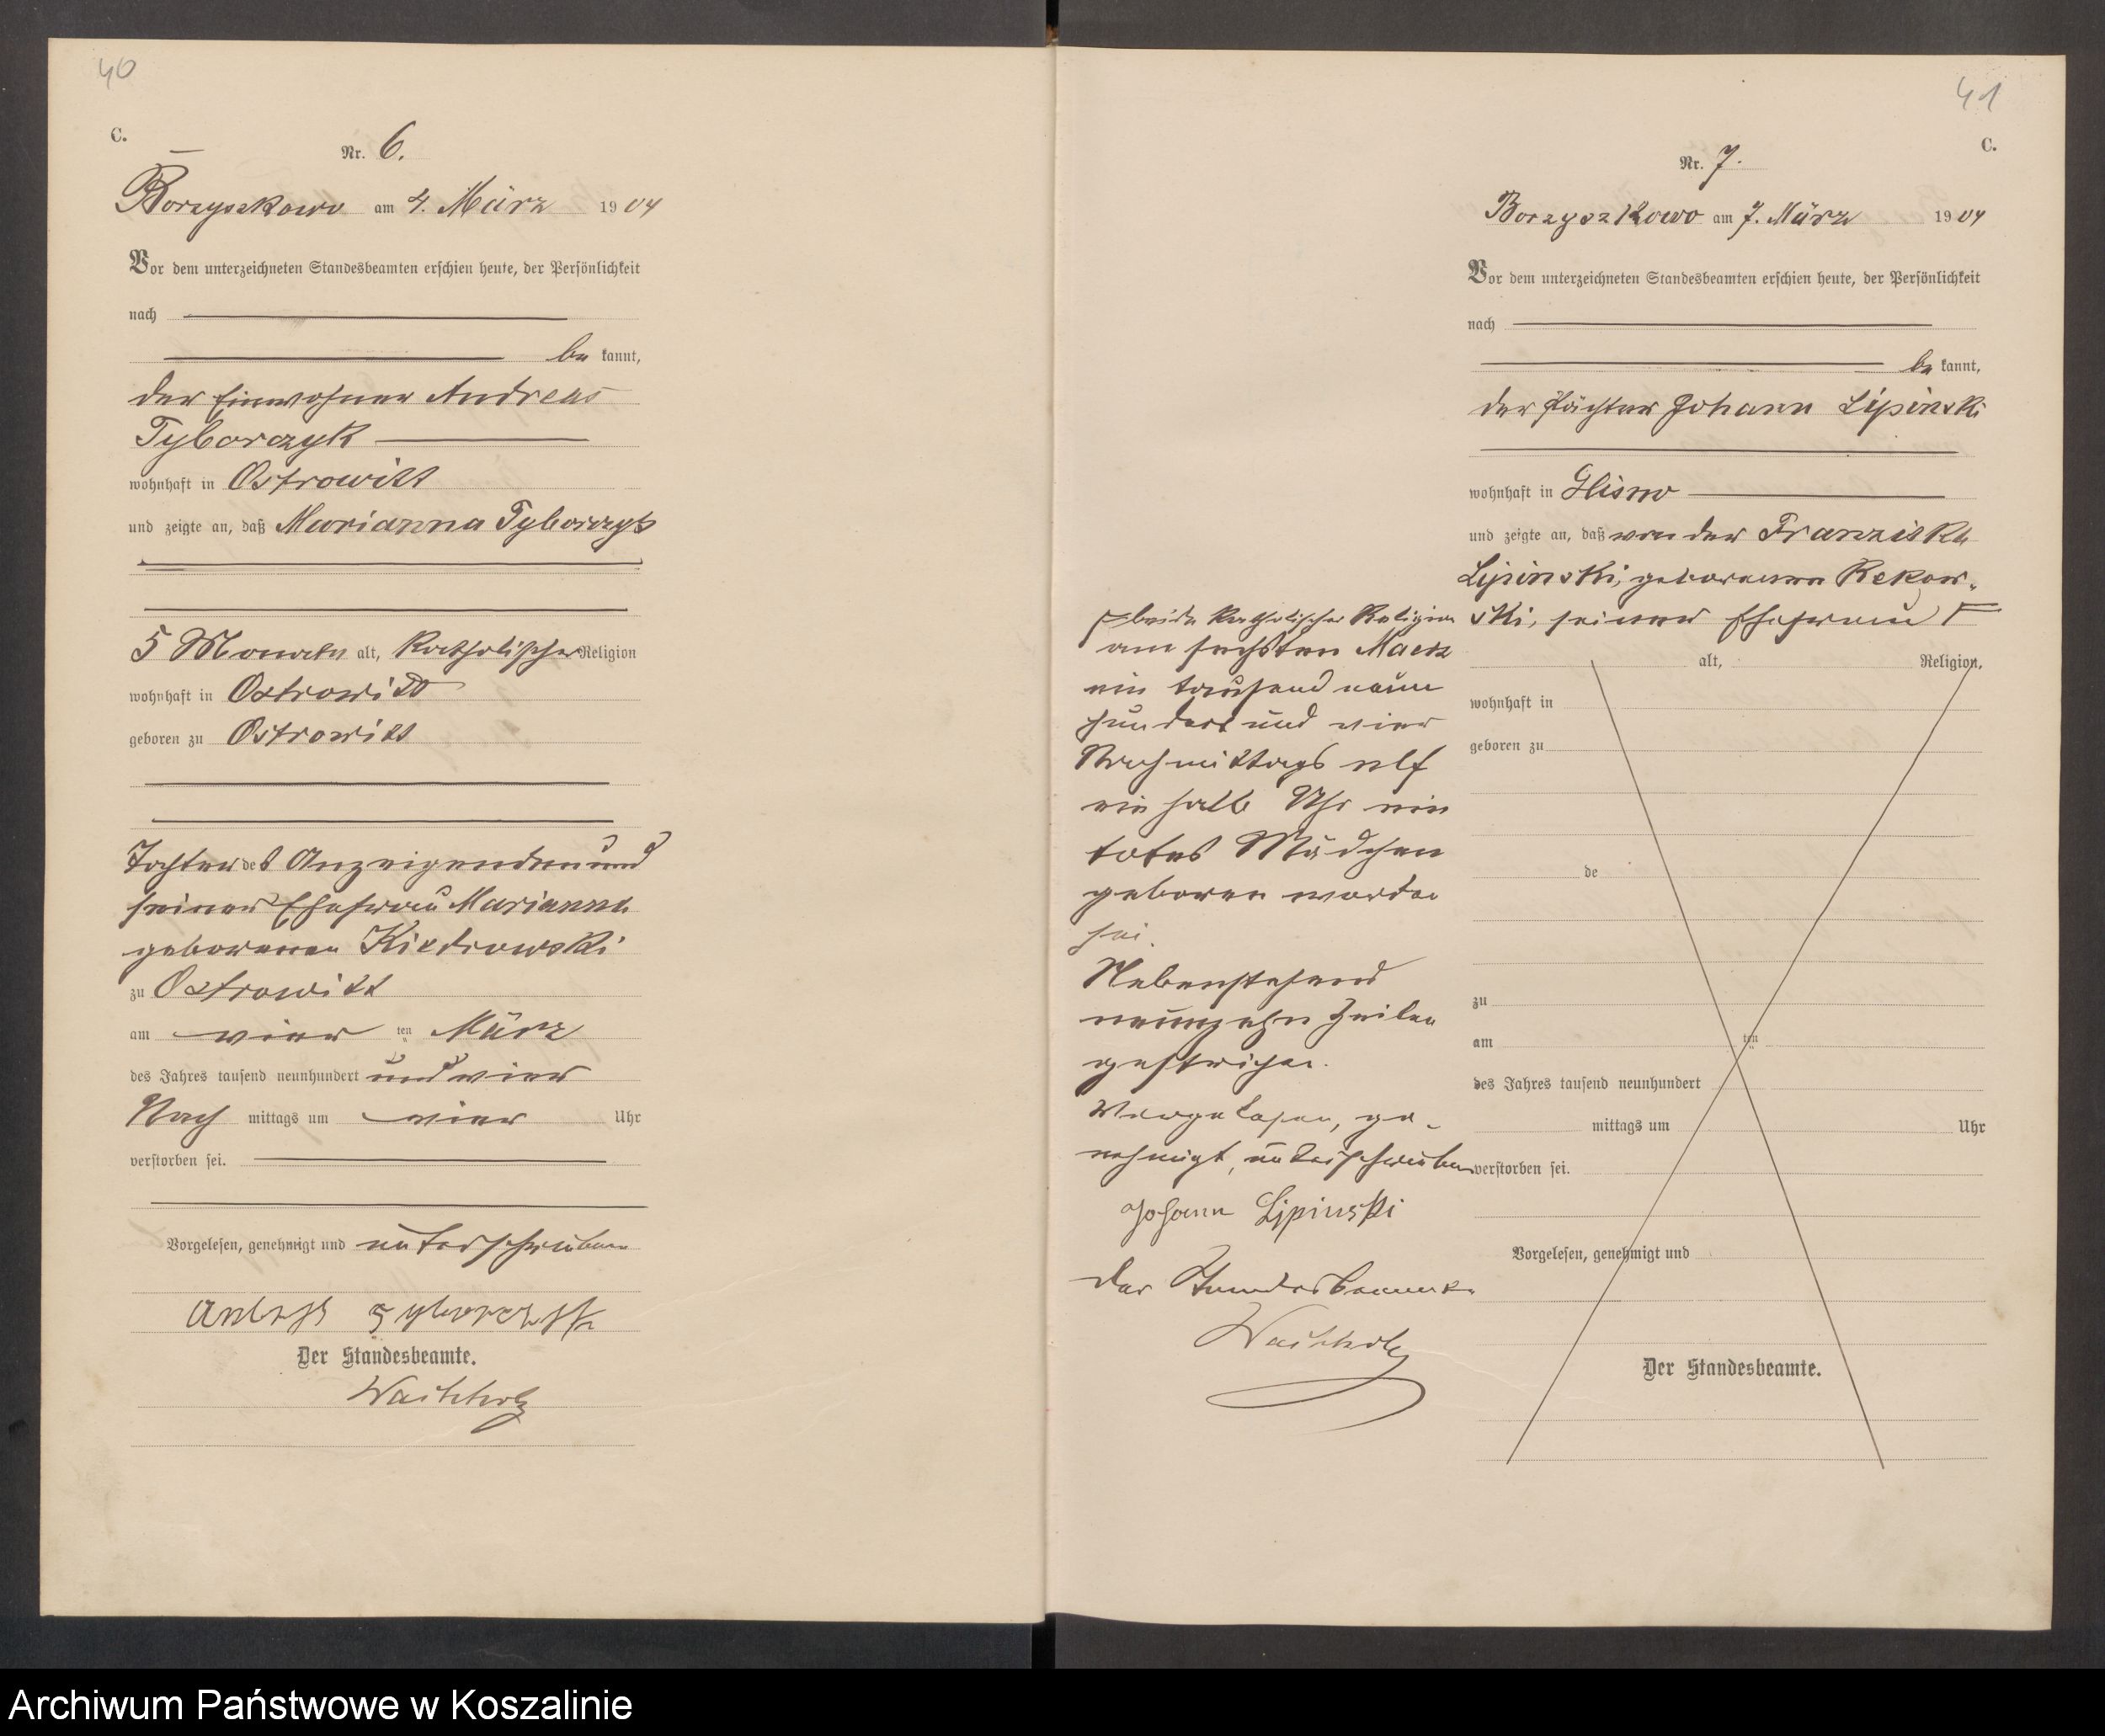 40
C.
Nr. 6.
Borzyszkowo am 4. März 1904
Vor dem unterzeichneten Standesbeamten erschien heute, der Persönlichkeit
nach
be kannt,
der Einwohner Andreas
Tyborczyk
wohnhaft in Ostrowitt
und zeigte an, daß Marianna Tyborczyk
5 Monate alt, katholischer Religion
wohnhaft in Ostrowitt
geboren zu Ostrowitt
Tochter des Anzeigenden und
seiner Ehefrau Marianna
geborenen Kiedrowski
zu Ostrowitt
am vier ten März
des Jahres tausend neunhundert und vier
Nach mittags um vier Uhr
verstorben sei.
Vorgelesen, genehmigt und unterschrieben
Tyborczyk
Der Standesbeamte.
41
C.
Nr. 7.
Borzyszkowo am 7. März 1904
Vor dem unterzeichneten Standesbeamten erschien heute, der Persönlichkeit
nach
be kannt,
der Pächter Johann Lipinski
wohnhaft in Glisno
und zeigte an, daß von der Franziska
Lipinski, geborenen Rekow-
ski, seiner Ehefrau
beide katholischer Religion
am sechsten Maerz
ein tausend neun
hundert und vier
Nachmittags elf
ein halb Uhr ein
totes Mädchen
geboren worden
sei.
Nebenstehend
neunzehn Zeilen
gestrichen.
Vorgelesen, ge-
nehmigt, unterschrieben
Johann Lipinski
Der Standesbeamte
alt, Religion,
wohnhaft in
geboren zu
de
zu
am ten
des Jahres tausend neunhundert
mittags um Uhr
verstorben sei.
Vorgelesen, genehmigt und
Der Standesbeamte.
Archiwum Państwowe w Koszalinie